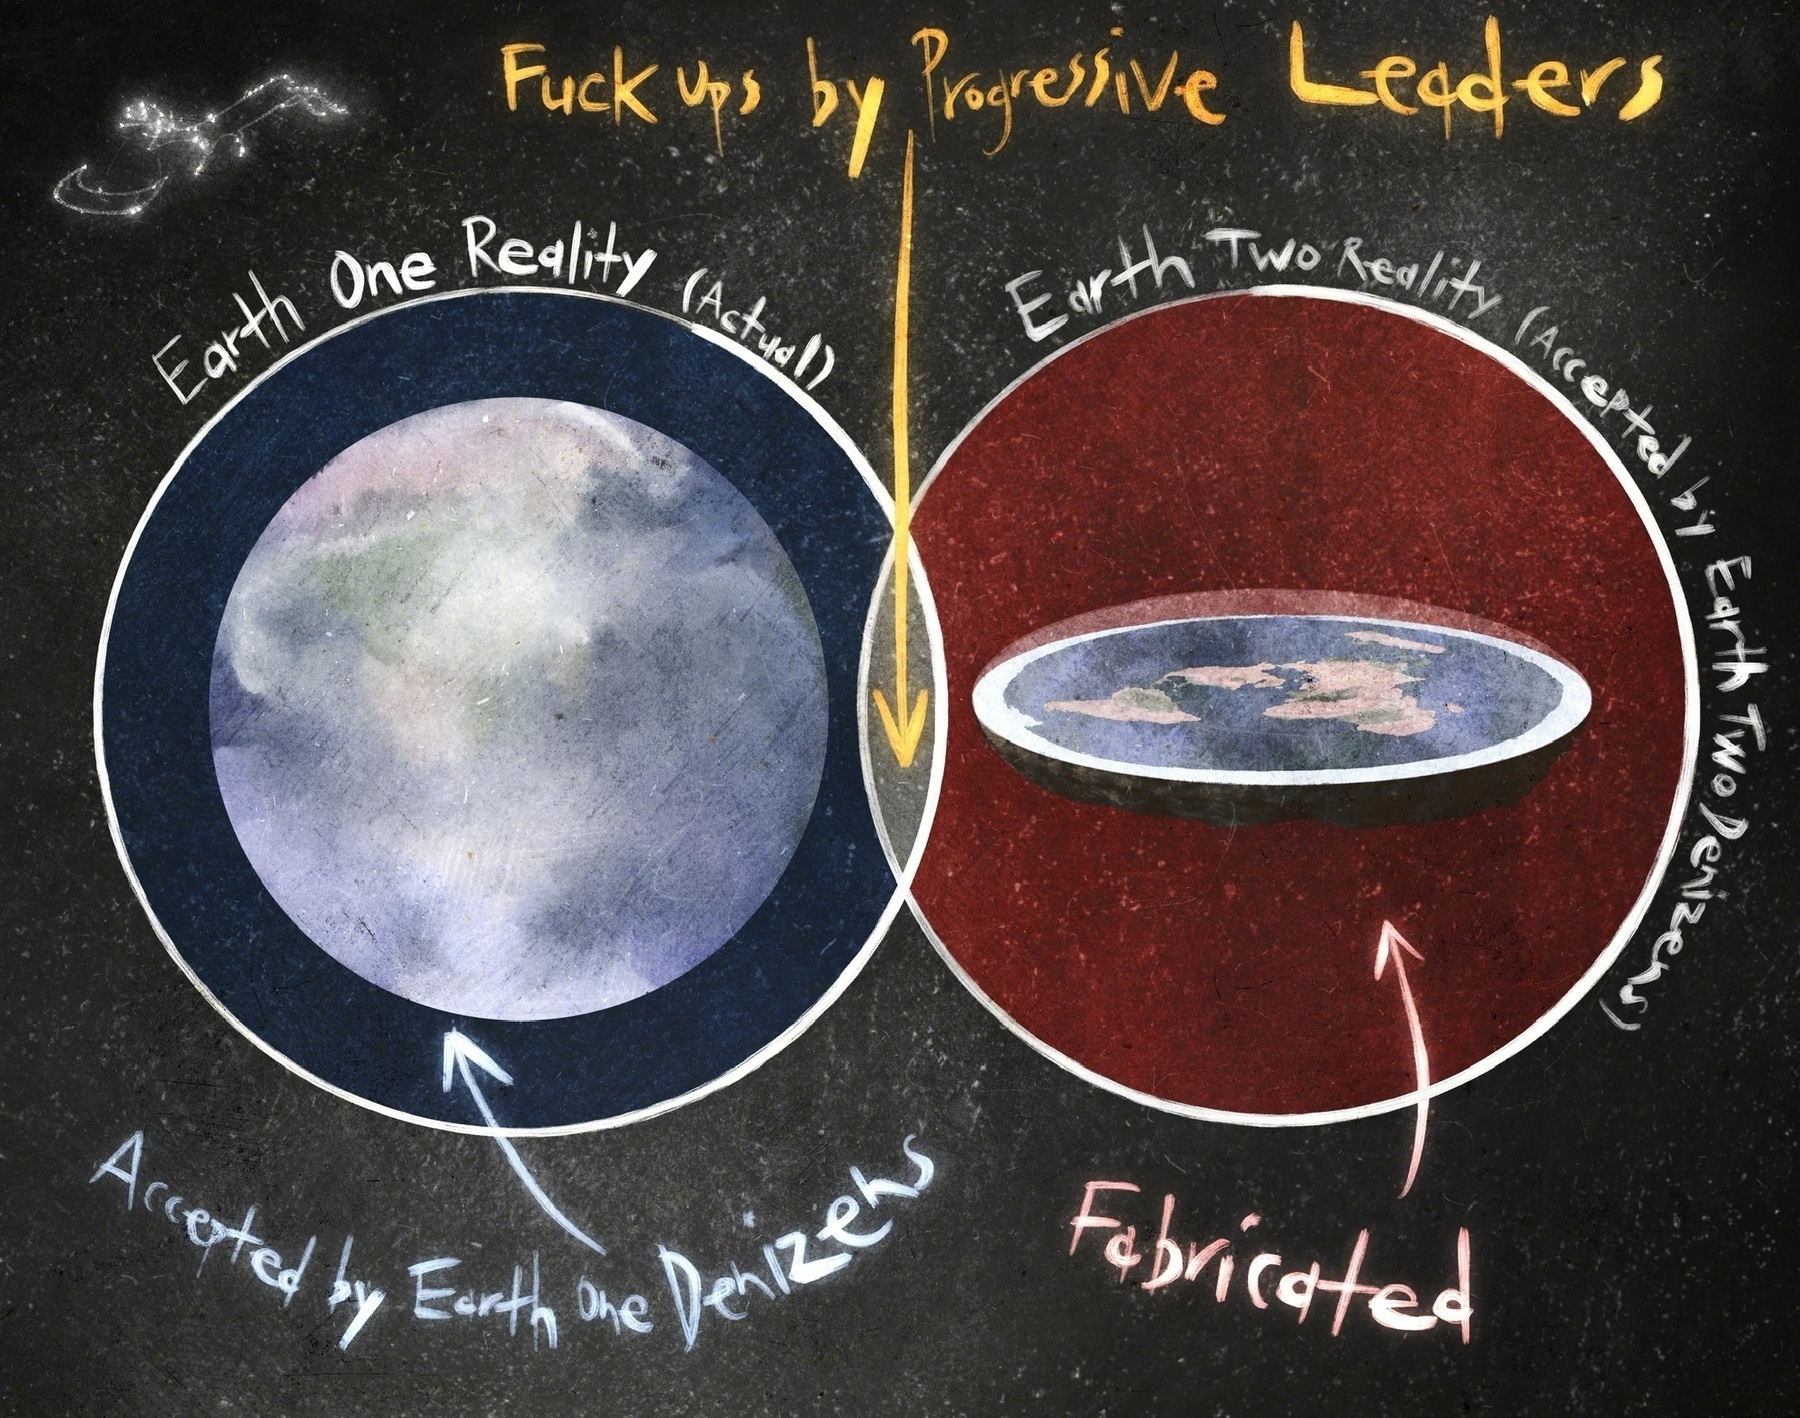 Fuck ups by Progressive Leaders
Earth One Reality (Actual)
Earth Two Reality (Accepted by Earth Two Denizens)
Accepted by Earth One Denizens
Fabricated